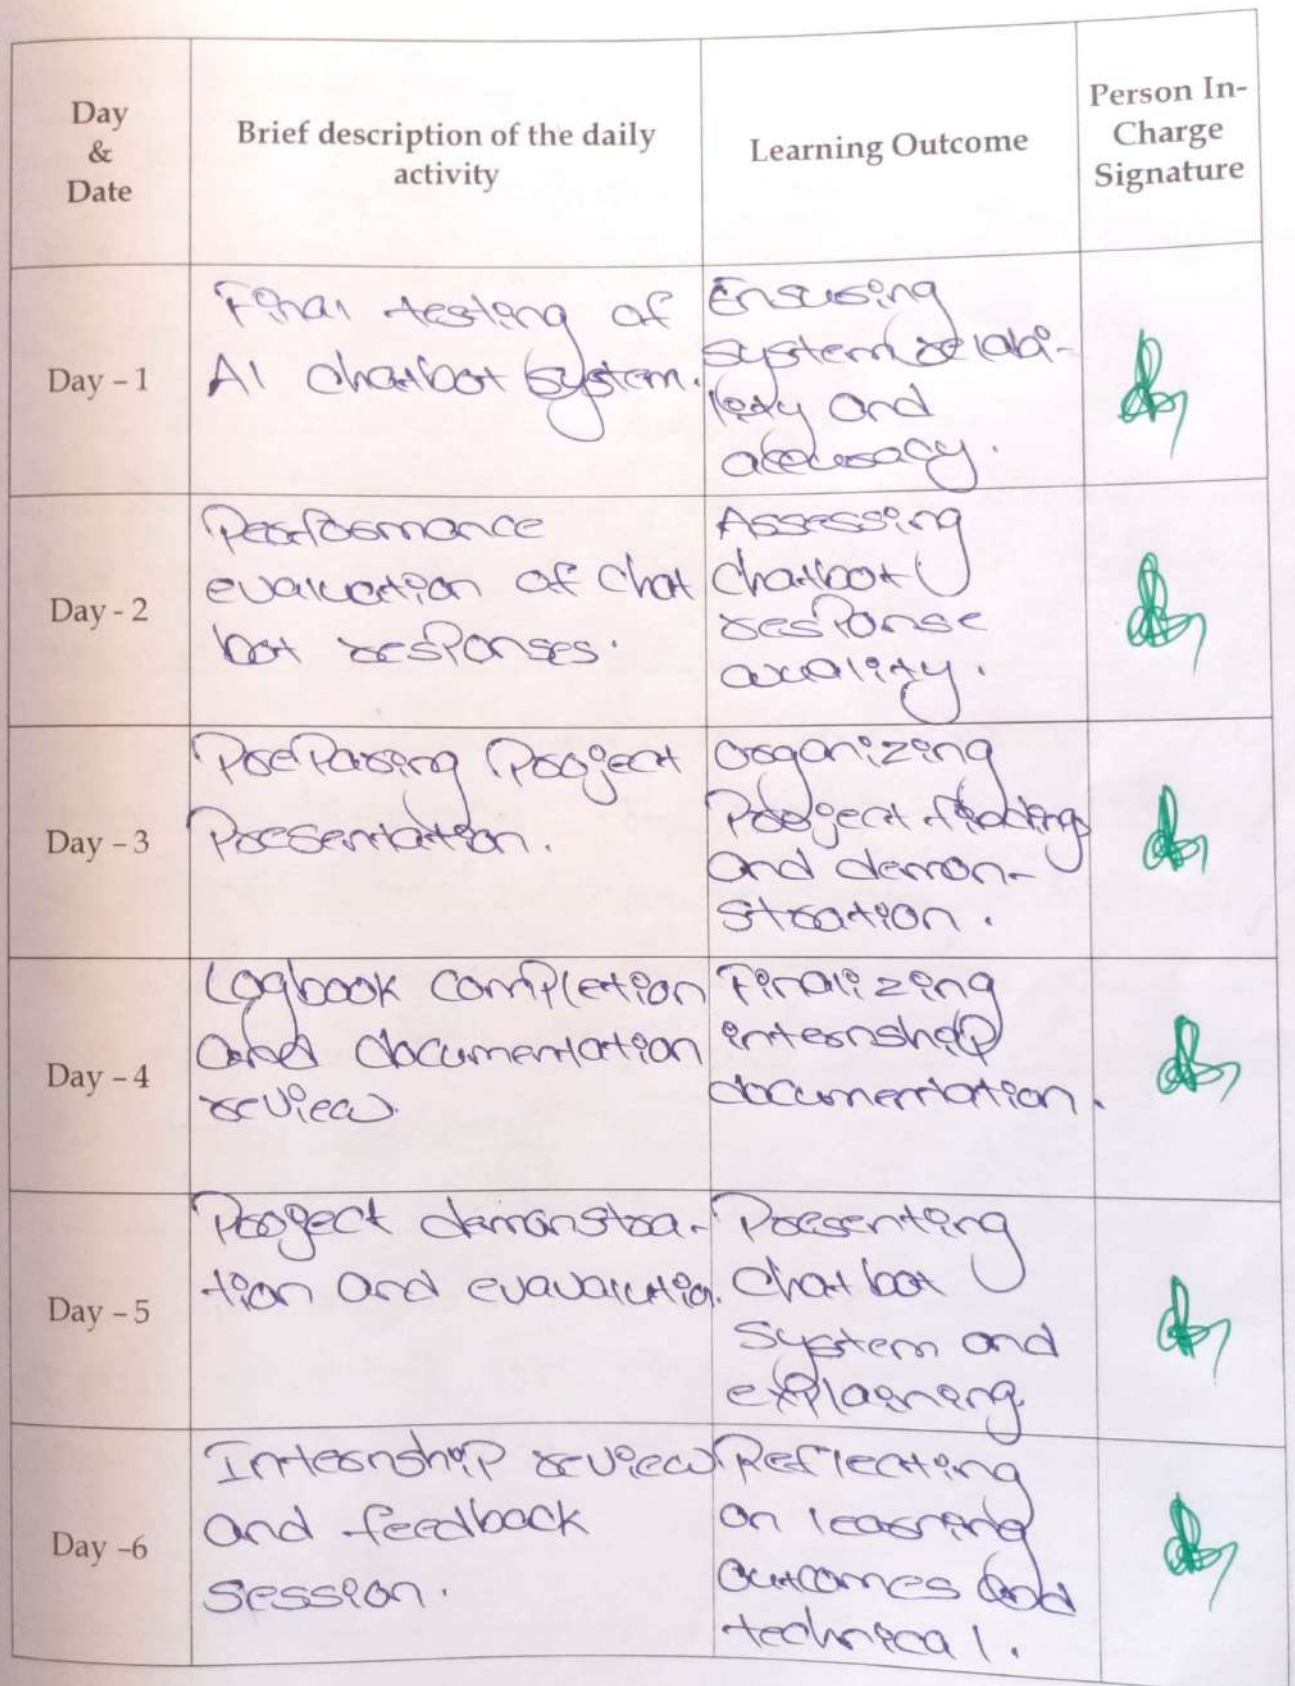 Day
&
Date
Brief description of the daily
activity
Learning Outcome
Person In-
Charge
Signature
Day – 1
Final testing of
AI chatbot system.
Ensusing
system relabi-
lity and
accuracy.
Day - 2
Performance
evaluation of chat
bot responses.
Assessing
chatbot
response
quality.
Day – 3
Preparing Project
Presentation.
Organizing
Project findings
and demon-
stration.
Day – 4
Logbook completion
and documentation
review.
Finalizing
internship
documentation.
Day – 5
Project demonstra-
tion and evavalutio.
Presenting
Chat bot
System and
explaining.
Day –6
Internship review
and feedback
session.
Reflecting
on learning
outcomes and
technical.